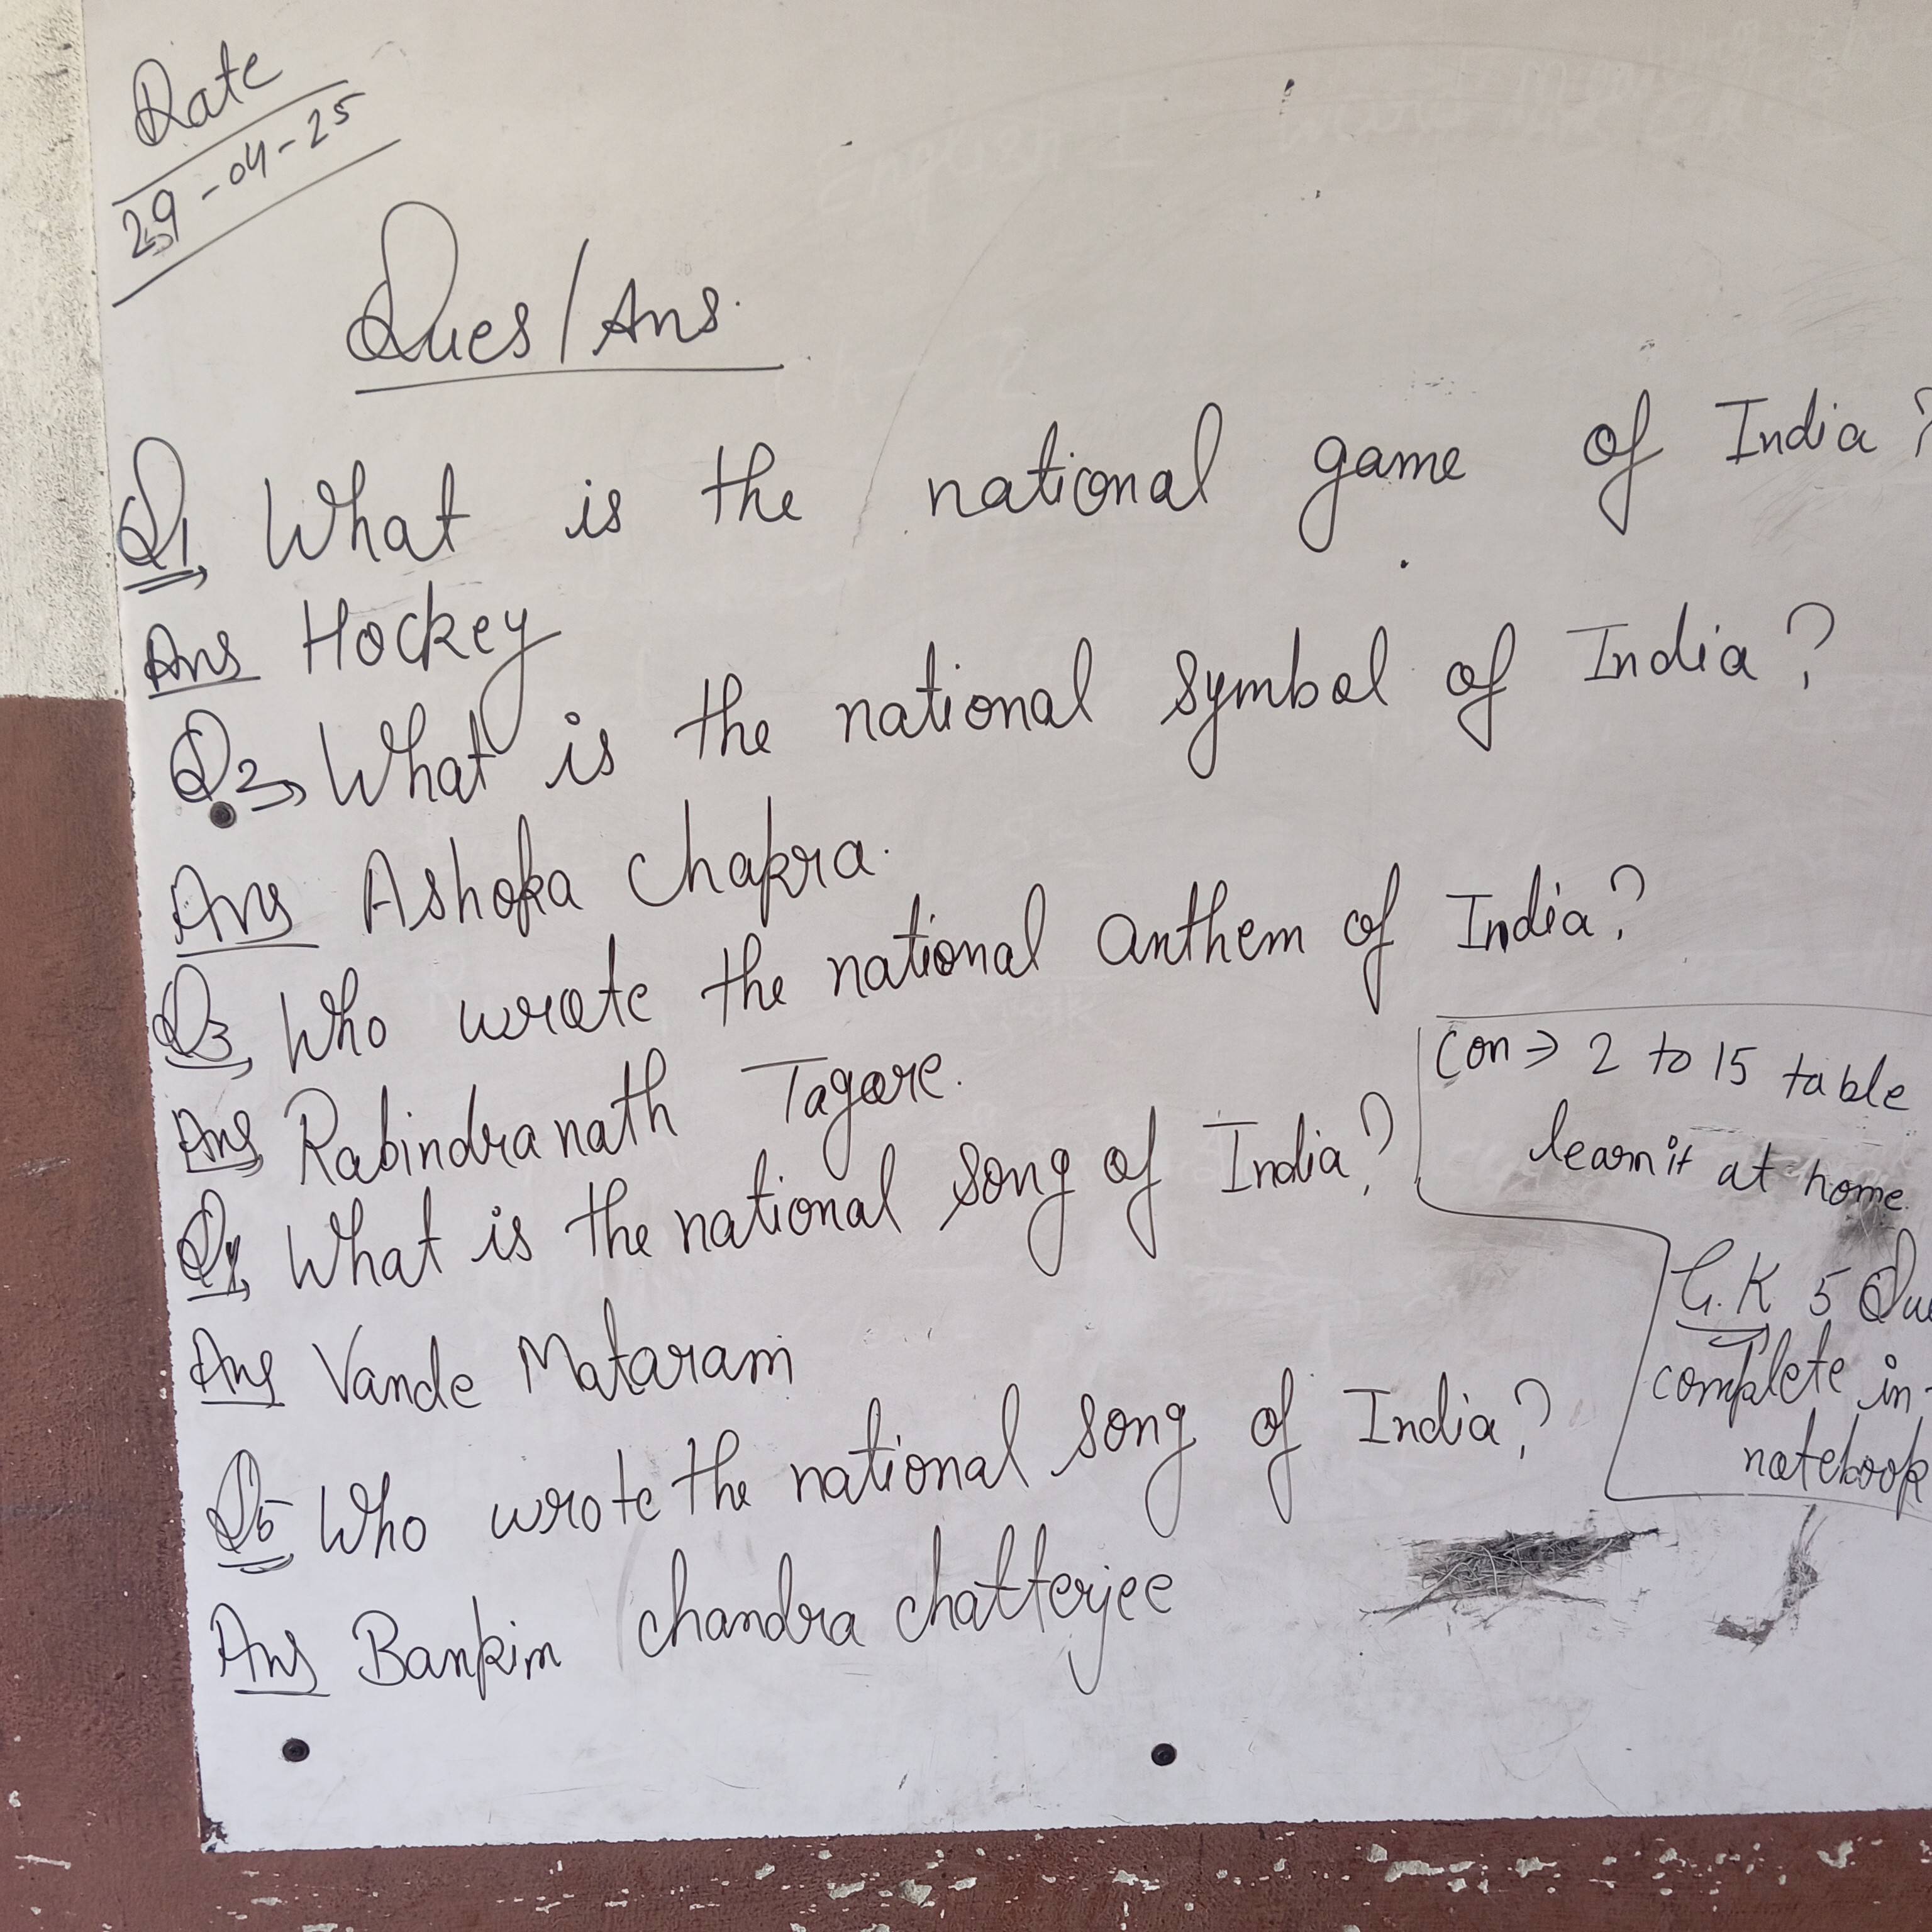 Date
29-04-25
Ques/Ans.
Q1, What is the national game of India?
Ans Hockey
Q2, What is the national symbol of India?
Ans Ashoka Chakra.
Q3, Who wrote the national anthem of India?
Ans, Rabindranath Tagore.
Q4, What is the national song of India?
Ans Vande Mataram
Q5 Who wrote the national song of India?
Ans Bankim chandra chatterjee
Con ⇒ 2 to 15 table
learn it at home.
G.K 5 Que
complete in
notebook